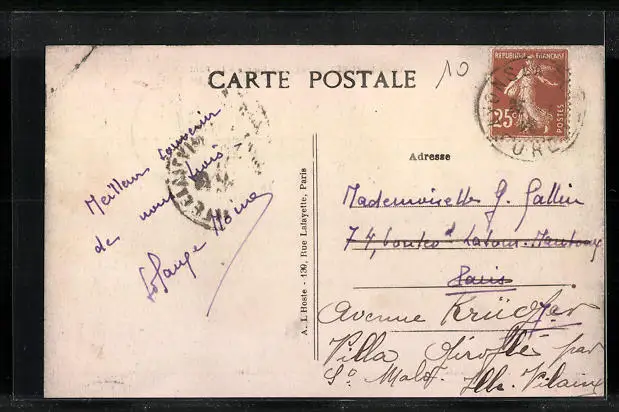 CARTE POSTALE
10
REPUBLIQUE FRANÇAISE
25c
POSTES
Adresse
Meilleur souvenir
de nous trois
Solange
Mademoiselle G. Gallin
74, Latour-Maubourg
Paris
Avenue Krüger
Villa Giroflé par
St Malo. Ille. Vilaine
A. L'Hoste - 130, Rue Lafayette, Paris